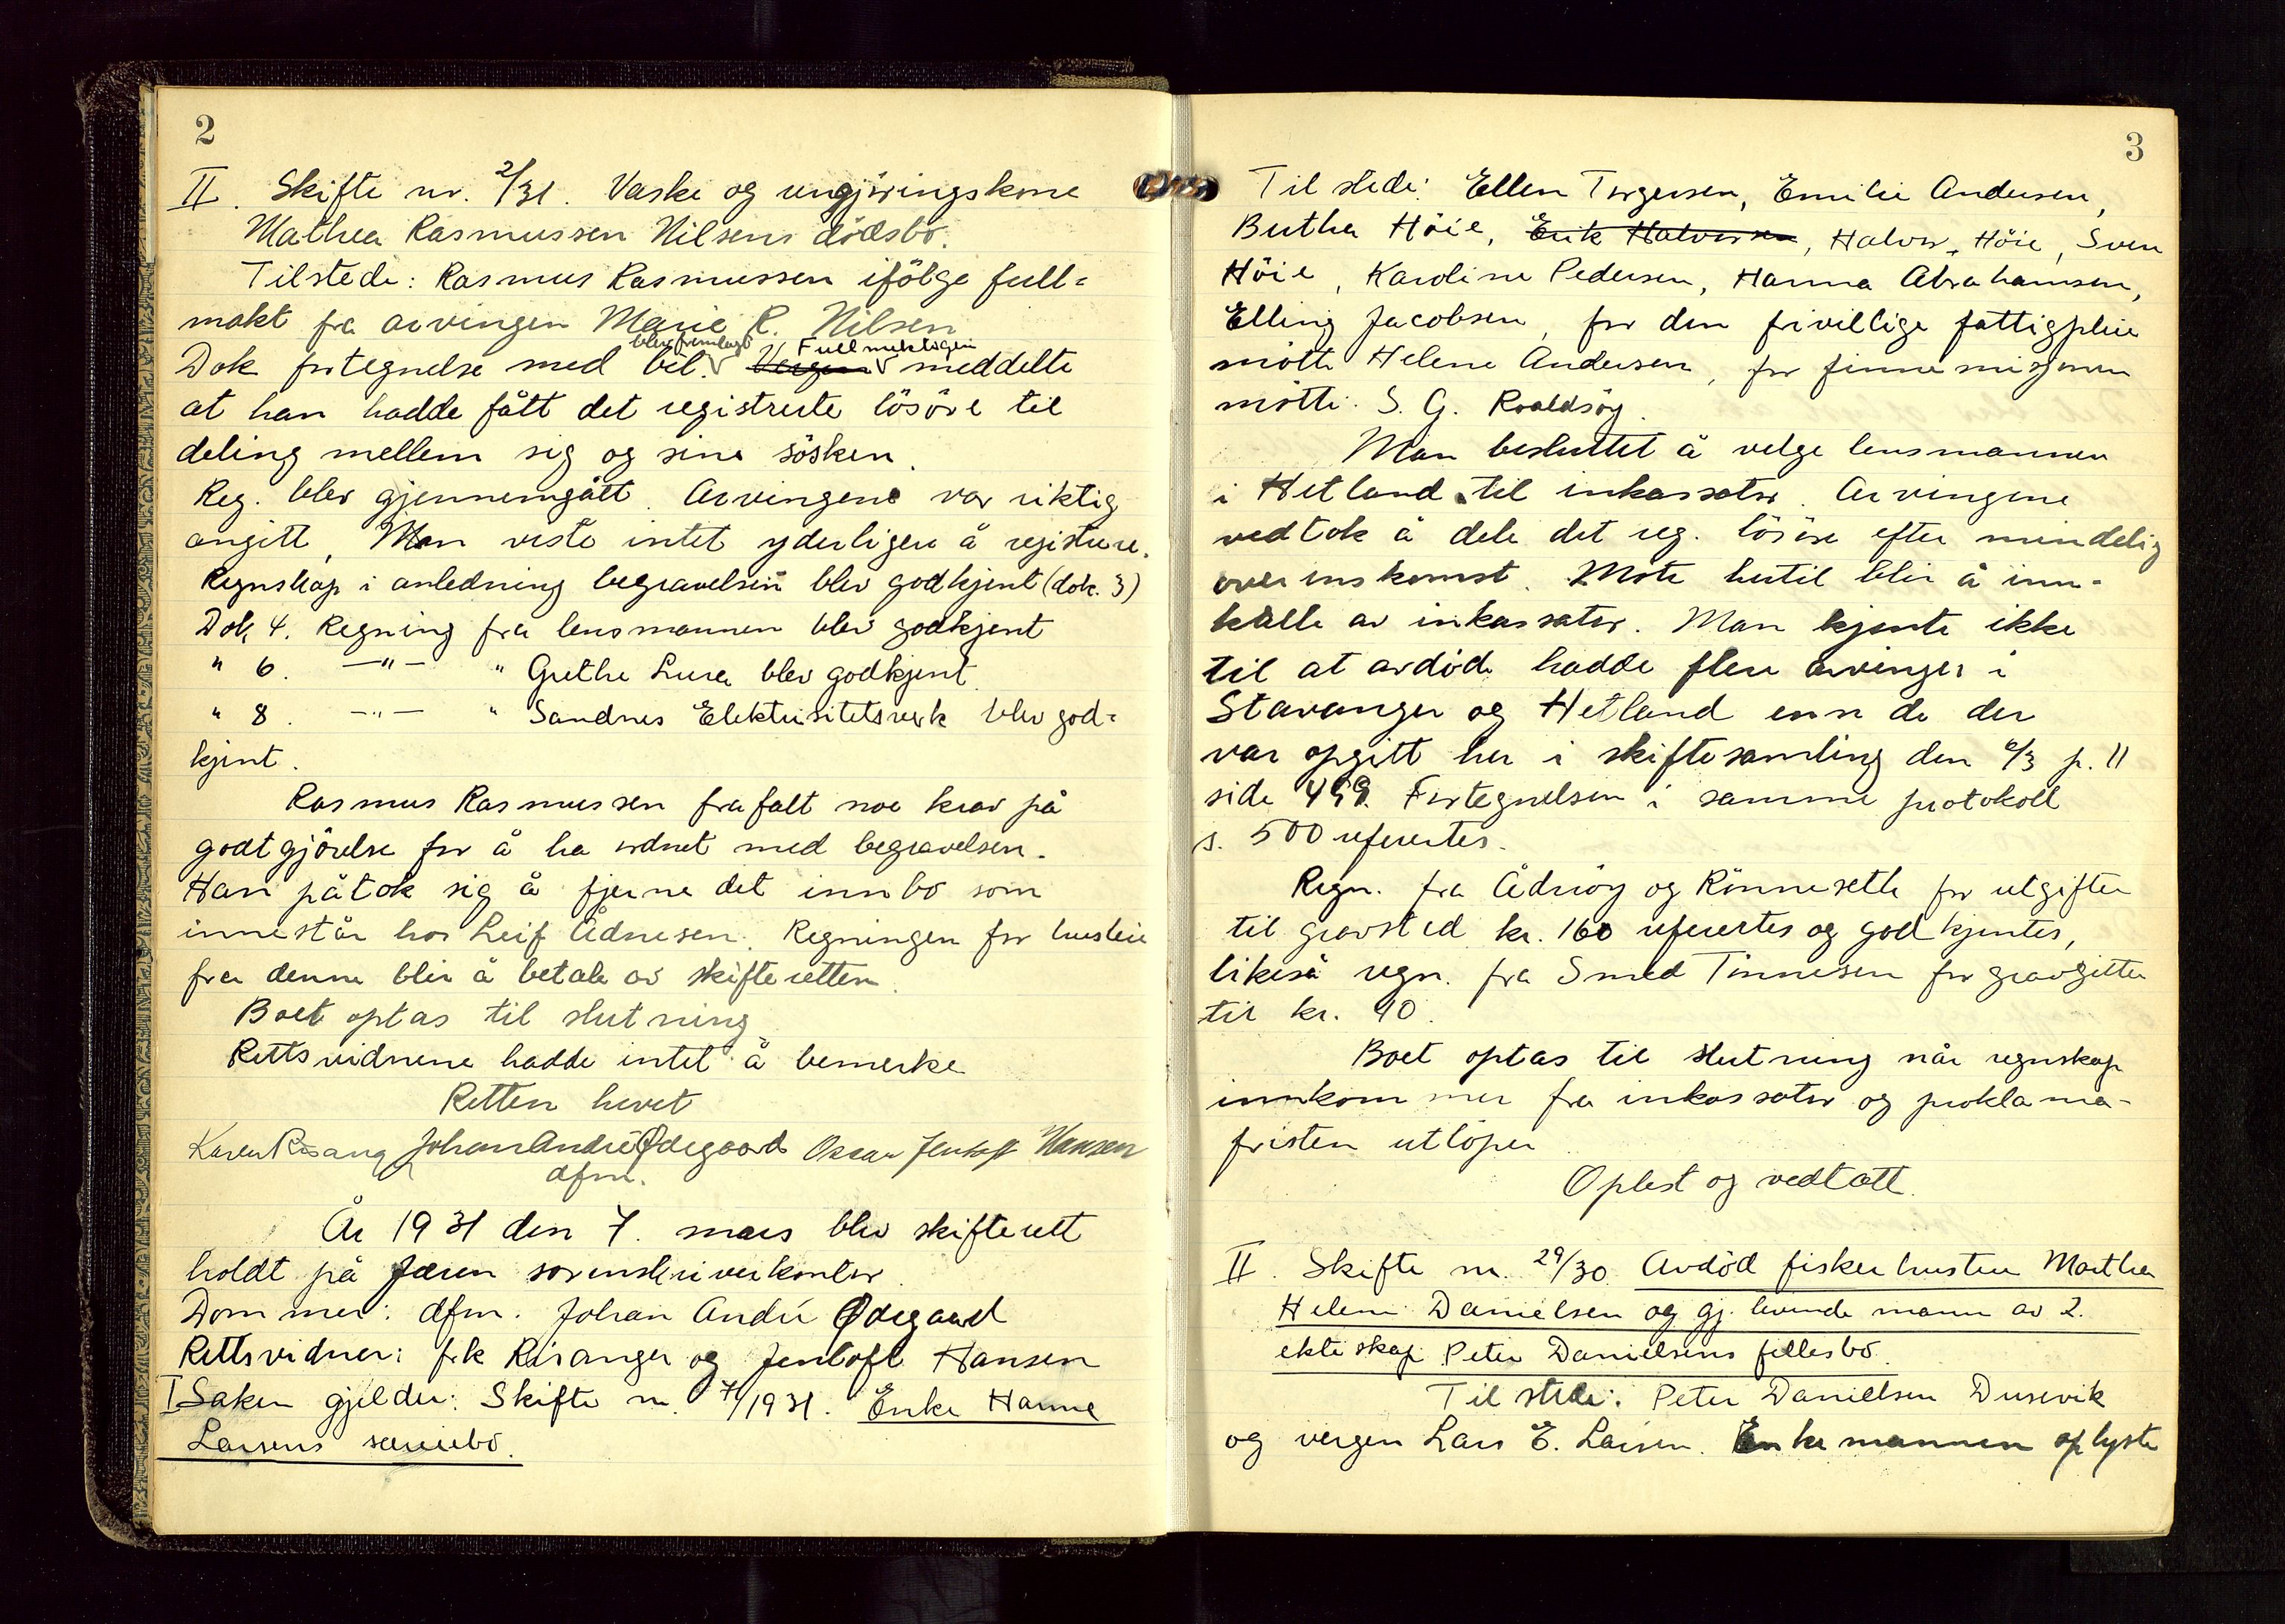 2
II. Skifte nr. 2/31. Vaske og rengjöringskone
Mathea Rasmussen Nilsens dödsbo.
Tilstede: Rasmus Rasmussen ifölge full-
makt fra arvingen Marie R. Nilsen
blev fremlagt Fullmektigen
Dok fortegnelse med bil. Vergen meddelte
at han hadde fått det registrerte lösöre til
deling mellem sig og sine sösken.
Reg. blev gjennemgått. Arvingene var riktig
angitt, Man visste intet yderligere å registrere.
Regnskap i anledning begravelsen blev godkjent (dok. 3)
Dok 4. Regning fra lensmannen blev godkjent
" 6. —"— " Grethe Lura blev godkjent
" 8. —"— " Sandnes Elektrisitetsverk blev god-
kjent.
Rasmus Rasmussen frafalt noe krav på
godtgjörelse for å ha ordnet med begravelsen.
Han påtok sig å fjerne det innbo som
innestår hos Leif Ådnesen. Regningen for husleie
fra denne blir å betale av skifteretten.
Boet optas til slutning
Rettsvidnene hadde intet å bemerke
Retten hevet
Karen Risang Johan André Ødegaard Oscar Jentoft Hansen
dfm.
År 1931 den 7. mars blev skifterett
holdt på Jæren sorenskriverkontor.
Dommer: dfm. Johan André Ødegaard
Rettsvidner: frk Risanger og Jentoft Hansen
I Saken gjelder: Skifte nr. 7/1931. Enke Hanne
Larsens særeiebo.
3
Til stede: Ellen Torgersen, Emilie Andersen,
Bertha Höie, Erik Halvorsen, Halvor Höie, Sven
Höie, Karoline Pedersen, Hanna Abrahamsen,
Elling Jacobsen, for den frivillige fattigpleie
mötte Helene Andersen, for finnemisjonen
mötte S. G. Roaldsöy.
Man besluttet å velge lensmannen
i Hetland til inkassator. Arvingene
vedtok å dele det reg. lösöre efter mindelig
overenskomst. Möte hertil blir å inn-
kalle av inkassator. Man kjente ikke
til at avdöde hadde flere arvinger i
Stavanger og Hetland enn de der
var opgitt her i skiftesamling den 2/3 p. 11
side 499. Fortegnelsen i samme protokoll
s. 500 refertes.
Regn. fra Ådnöy og Rönneseth for utgifter
til gravsted kr. 160 refertes og godkjentes,
likeså regn. fra Smed Tönnesen for gravgitter
til kr. 90.
Boet optas til slutning når regnskap
innkommer fra inkassator og proklama-
fristen utlöper
Oplest og vedtatt.
II. Skifte nr. 29/30. Avdöd fiskerhustru Martha
Helene Danielsen og gj. levende mann av 2.
ekteskap Peter Danielsens fellesbo.
Til stede: Peter Danielsen Dusevik
og vergen Lars E. Larsen. Enkemannen oplyste